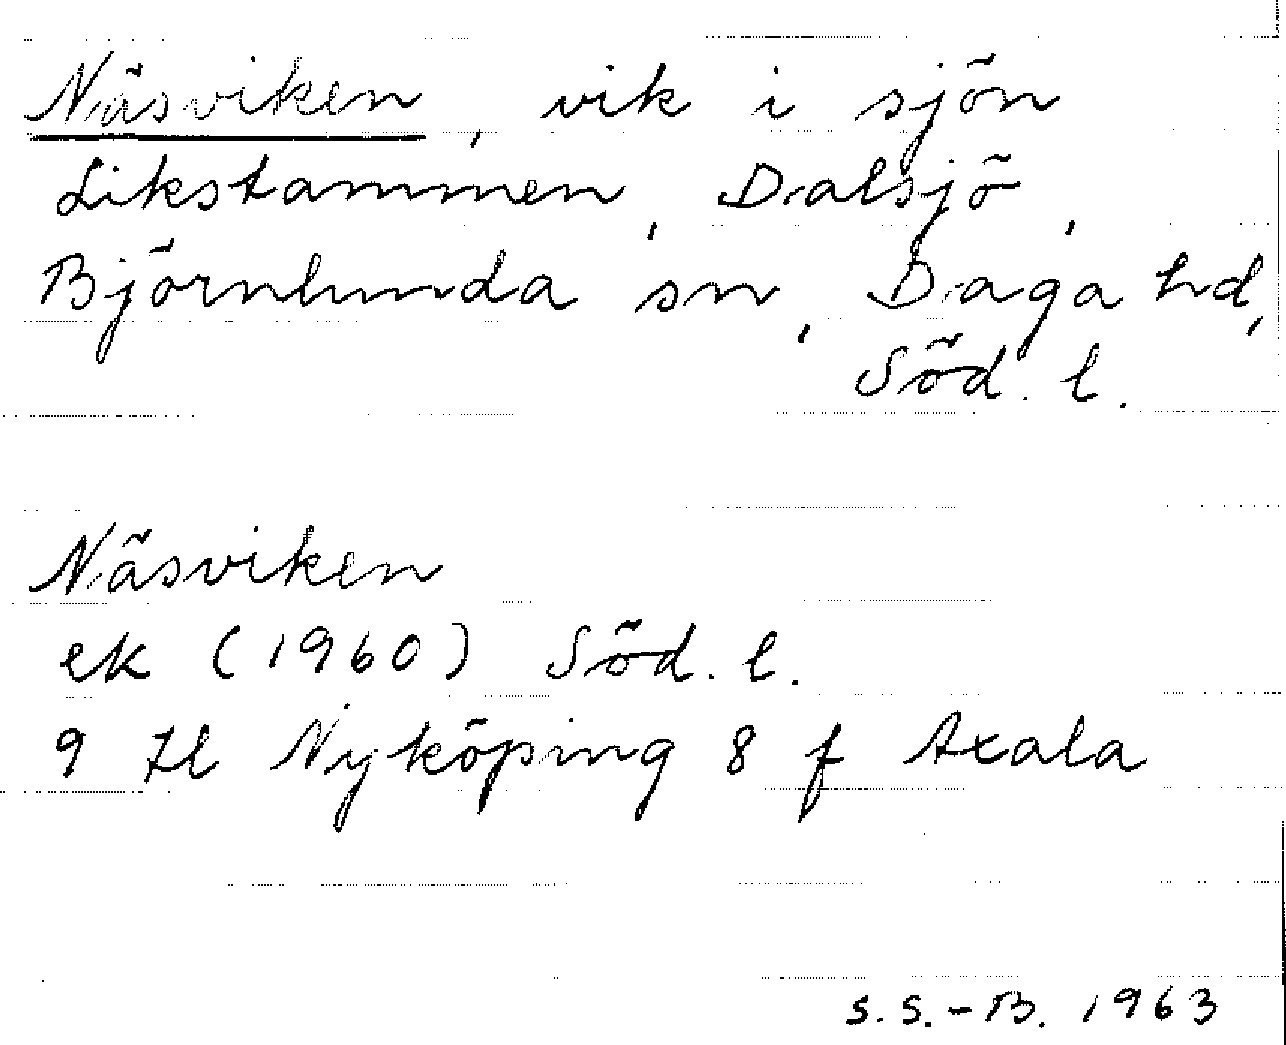 Näsviken, vik i sjön
Likstammen, Dalsjö,
Björnlunda sn, Daga hd,
Söd. l.
Näsviken
ek (1960) Söd. l.
9 H Nyköping 8 f Axala
S. S.-B. 1963